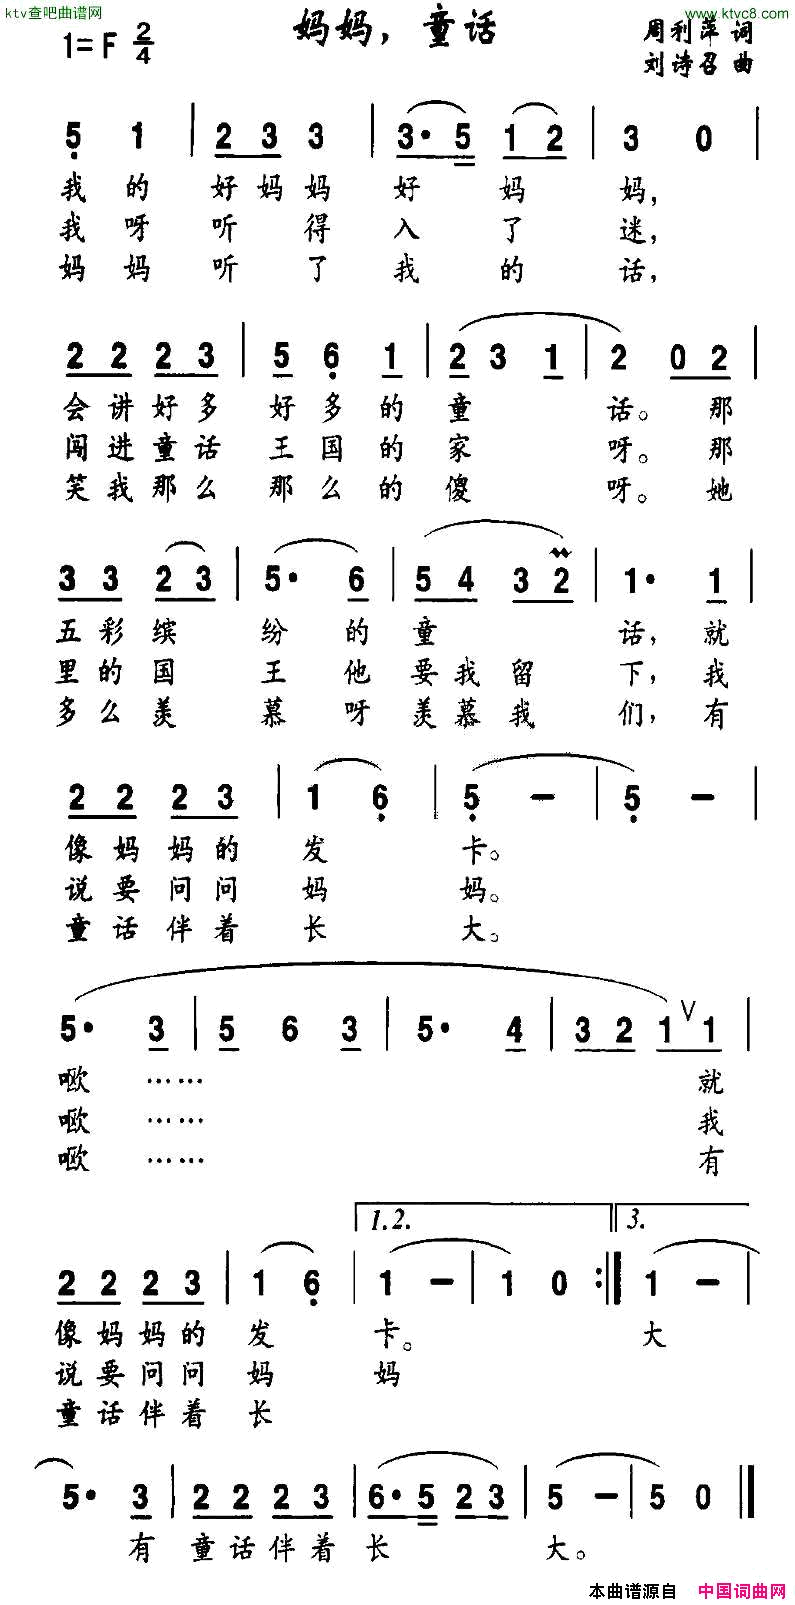 ktv查吧曲谱网
www.ktvc8.com
妈妈，童话
1=F 2/4
周利萍 词
刘诗召 曲
5 1 | 2 3 3 | 3· 5 1 2 | 3 0 |
我的 好妈妈 好 妈 妈，
我呀 听 得 入 了 迷，
妈妈 听 了 我 的 话，
2 2 2 3 | 5 6 1 | 2 3 1 | 2 0 2 |
会讲好多 好多的童 话。那
闯进童话 王国的家 呀。那
笑我那么 那么的傻 呀。她
3 3 2 3 | 5· 6 | 5 4 3 2 | 1· 1 |
五彩缤 纷 的 童 话，就
里的国 王 他 要我留 下，我
多么羡 慕 呀 羡慕我 们，有
2 2 2 3 | 1 6 | 5 - | 5 - |
像妈妈的 发 卡。
说要问问 妈 妈。
童话伴着 长 大。
5· 3 | 5 6 3 | 5· 4 | 3 2 1 ∨ 1 |
噷 …… 就
噷 …… 我
噷 …… 有
1.2. 3.
2 2 2 3 | 1 6 | 1 - | 1 0 :| 1 - |
像妈妈的 发 卡。 大
说要问问 妈 妈
童话伴着 长
5· 3 | 2 2 2 3 | 6· 5 2 3 | 5 - | 5 0 ‖
有 童话伴着 长 大。
本曲谱源自 中国词曲网